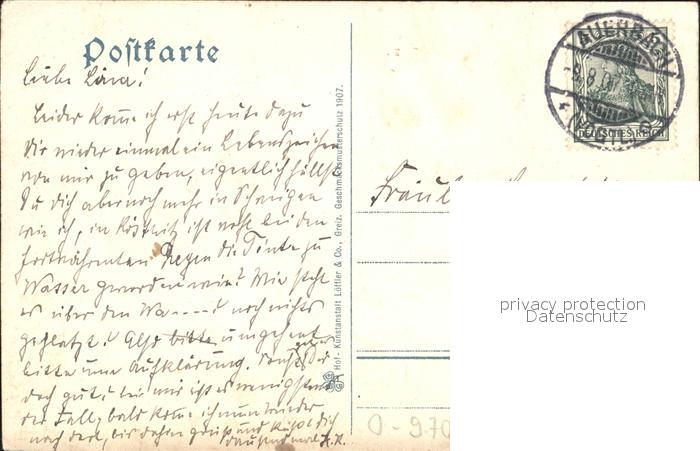 Postkarte
Liebe Lina!
Leider komme ich erst heute dazu
Dir wieder einmal ein Lebenszeichen
von mir zu geben, eigentlich hüllst
Du dich aber noch mehr in Schweigen
wie ich, in Köstritz ist wohl bei dem
fortwährenden Regen die Tinte zu
Wasser geworden wie? Wie steht
es über den Wa----? noch nichts
geplatzt? Also bitte umgehend
bitte um Aufklärung. Sonst geht's Dir
doch gut? bei mir ist es wenigstens
der Fall, bald komme ich nun wieder
nach dort, bis dahin grüßt und küßt Dich
tausendmal
Hof-Kunstanstalt Löffler & Co., Greiz. Geschmacksmusterschutz 1907.
AUERBACH
DEUTSCHES REICH
Fräul
privacy protection
Datenschutz